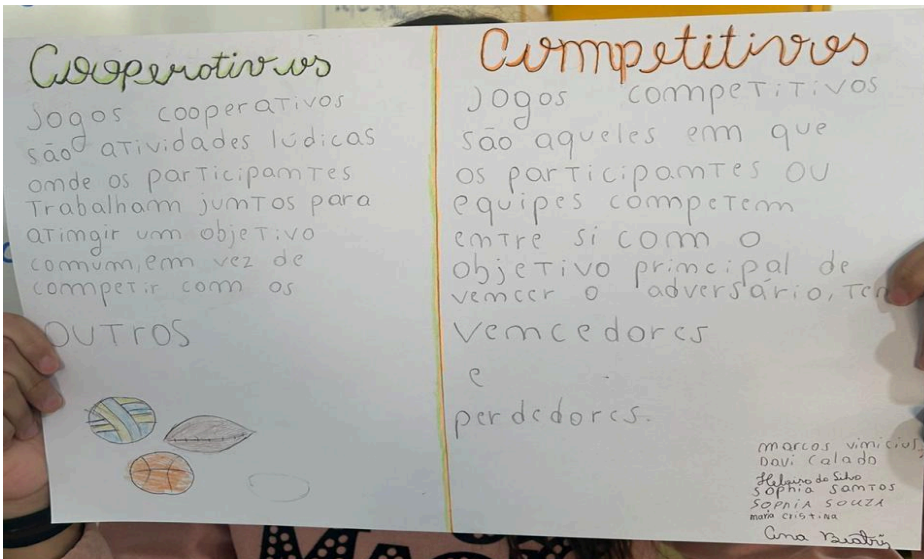 Cooperativos
Jogos cooperativos
são atividades lúdicas
onde os participantes
Trabalham juntos para
atingir um objetivo
comum, em vez de
competir com os
OUTROS
Competitivos
Jogos competitivos
são aqueles em que
os participantes ou
equipes competem
entre si com o
objetivo principal de
vencer o adversário, tem
vencedores
e
perdedores.
marcos vinicius
Davi Calado
da Silva
Sophia Santos
Sophia Souza
maria cristina
Ana Beatriz